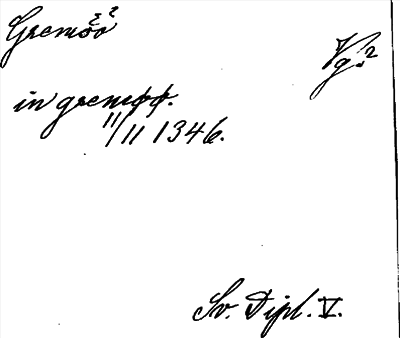 Gremöö ? ?
Vg. ?
in gremøø.
11/11 1346.
Sv. Dipl. V.